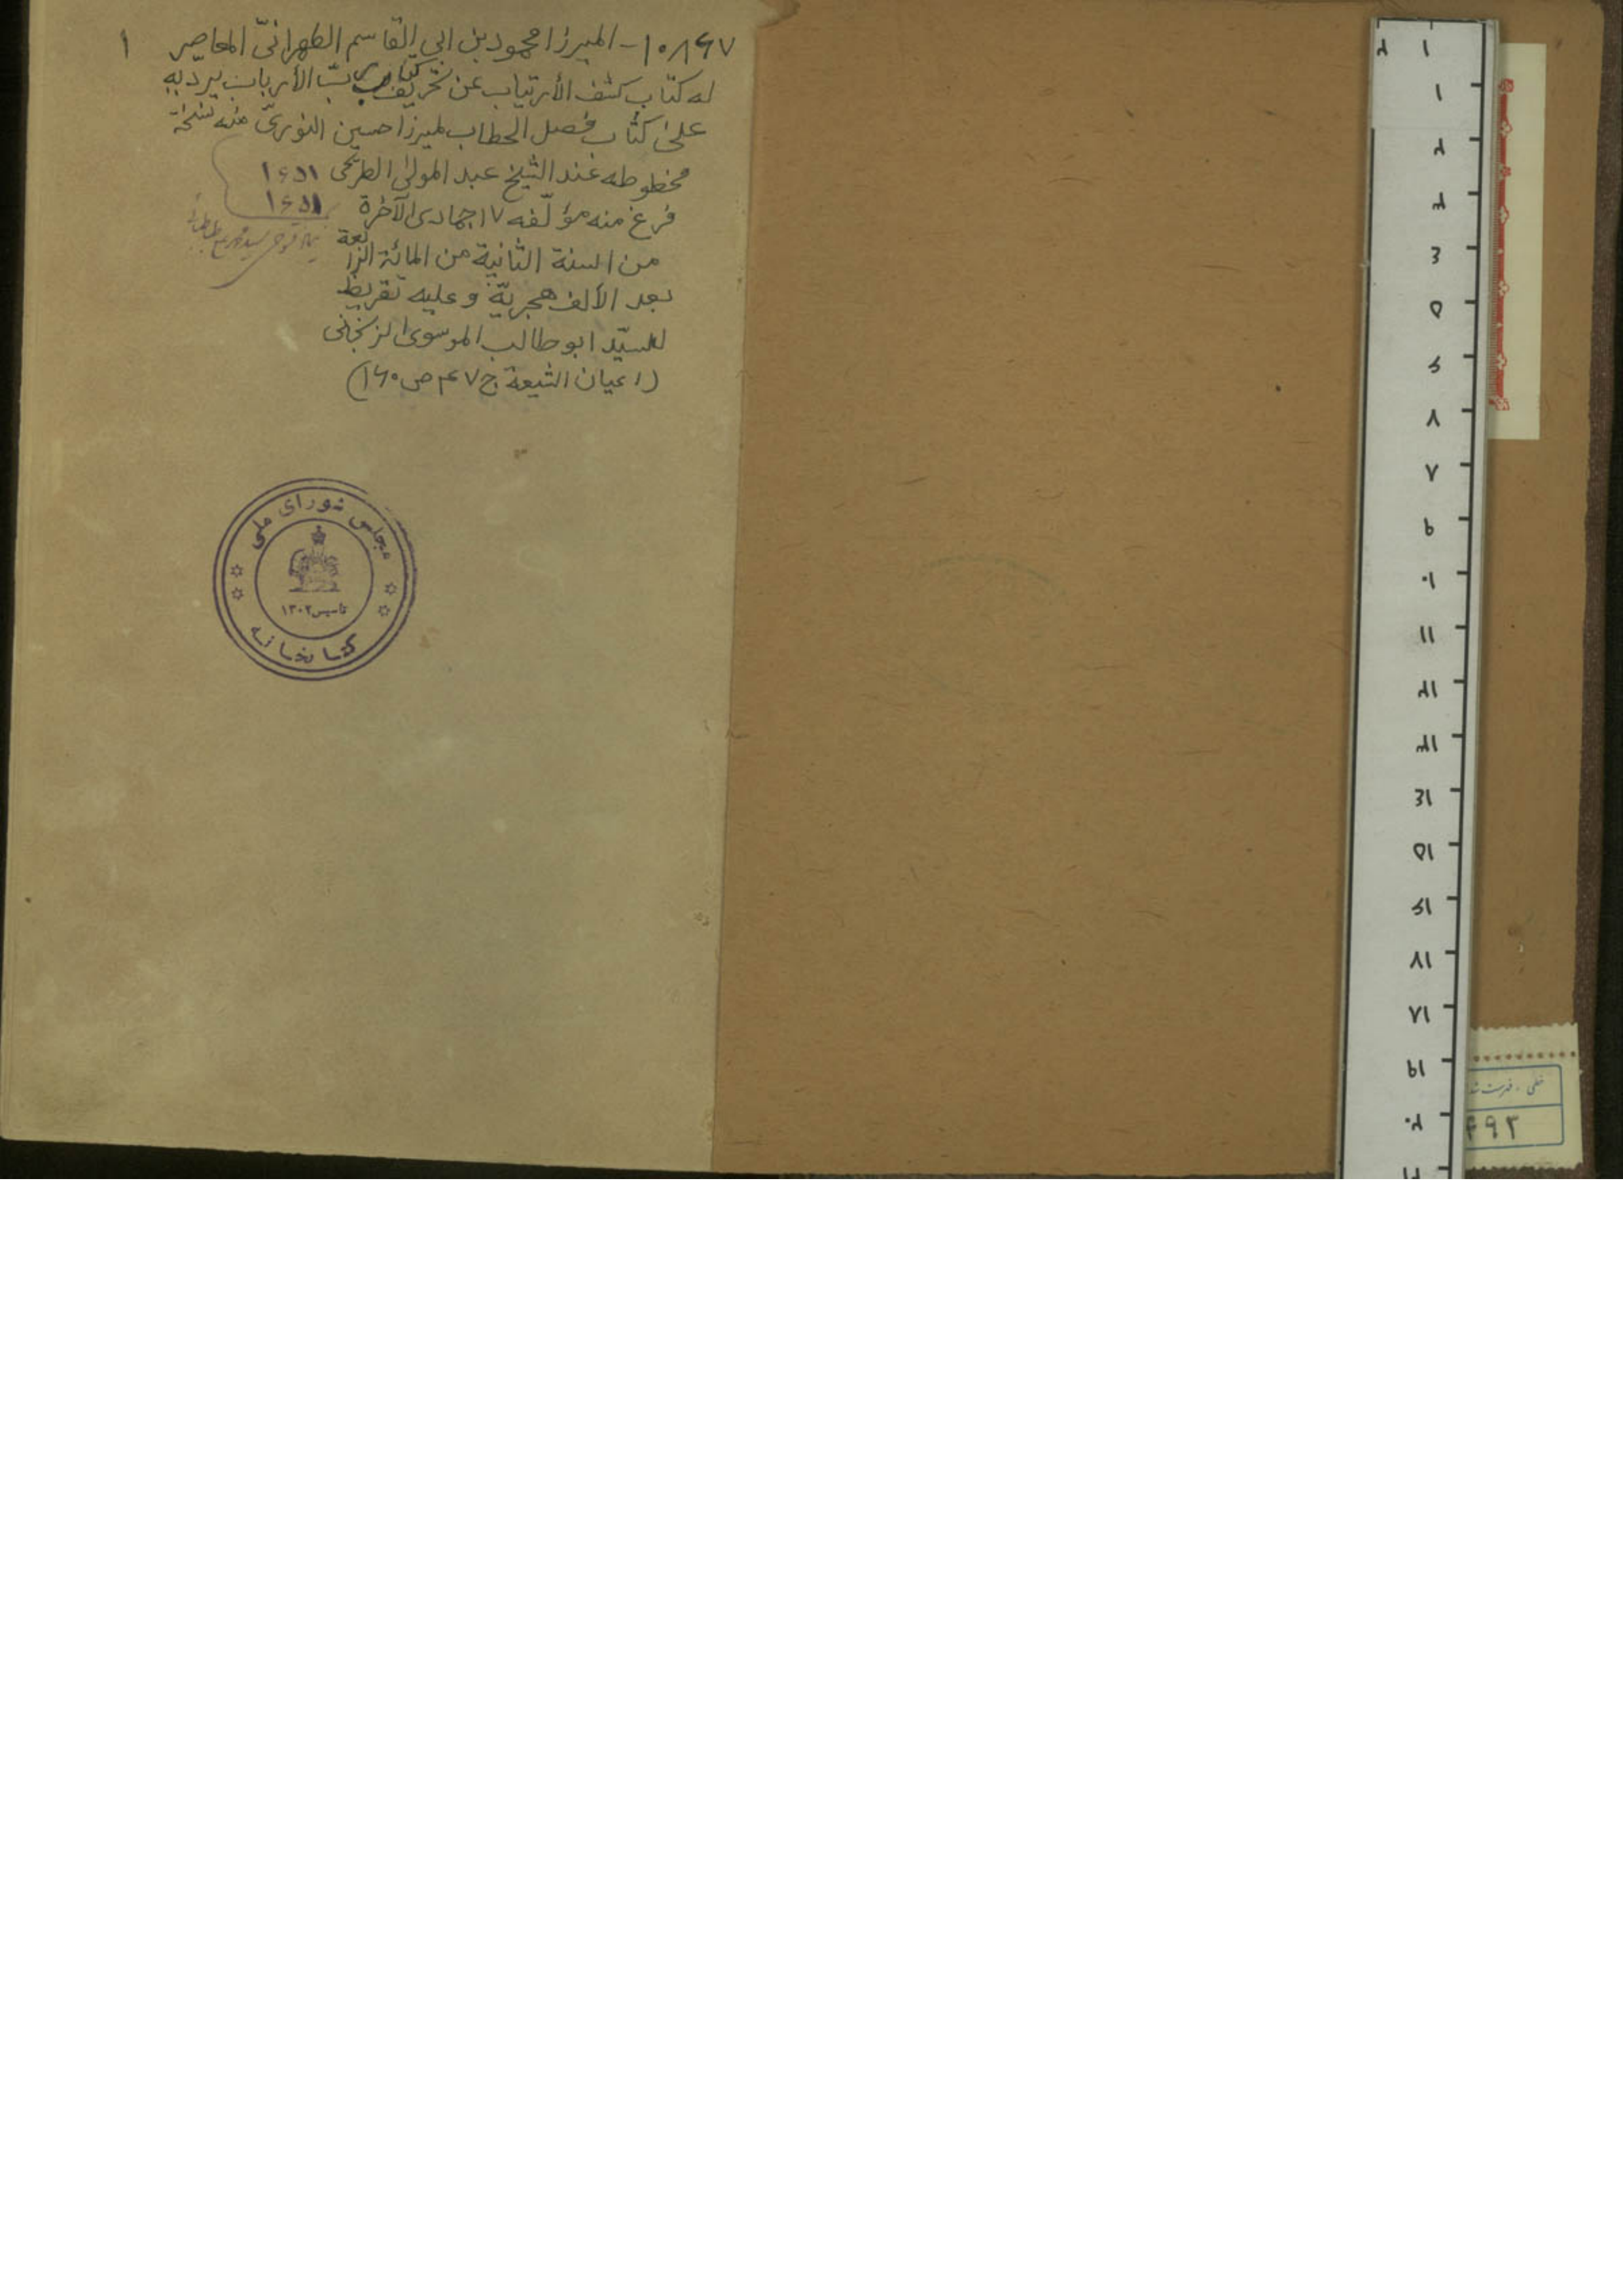 ١٠٨٤٧ - الميرزا محمود بن ابي القاسم الطهرانىّ المعاصر
١
له كتاب كشف الأرتياب عن تحريف كتاب ربّ الأرباب يردّ به
على كتاب فصل الخطاب لميرزا حسين النورىّ منه نسخة
مخطوطه عند الشيخ عبد المولى الطريحى
فرغ منه مؤلّفه ١٧ جمادى الآخرة
من السنة الثانية من المائة الرابعة
بعد الألف هجريّة وعليه تقريظ
للسيّد ابو طالب الموسوى الزنجانى
(اعيان الشيعة ج ٤٧ ص ١٦٠)
مجلس شورای ملی
تاسیس ١٣٠٢
کتابخانه
١ ٢
١
٢
٣
٤
٥
٦
٧
٨
٩
١٠
١١
١٢
١٣
١٤
١٥
١٦
١٧
١٨
١٩
٢٠
خطی - فهرست شد
٤٩٣